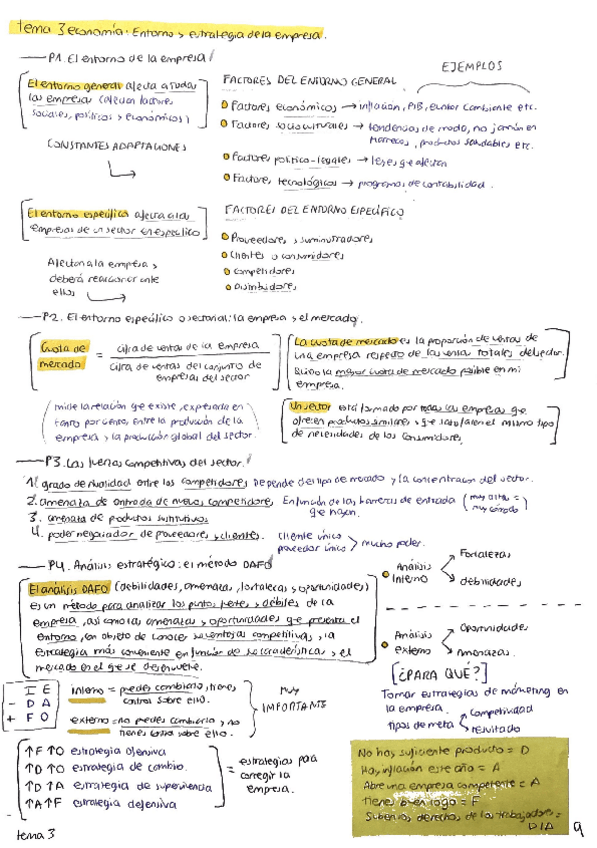 tema 3 economía: Entorno y estrategia de la empresa.
P1. El entorno de la empresa
El entorno general afecta a todas
las empresas (afectan factores
sociales, políticos y económicos)
CONSTANTES ADAPTACIONES
FACTORES DEL ENTORNO GENERAL
EJEMPLOS
Factores económicos → inflación, PIB, Euribor Cambiente etc.
Factores socioculturales → tendencias de moda, no jamón en
marruecos, productos saludables etc.
Factores político-legales → leyes que afectan
Factores tecnológicos → programas de contabilidad.
El entorno específico afecta a las
empresas de un sector en específico
Afectan a la empresa y
deberá reaccionar ante
ellos
FACTORES DEL ENTORNO ESPECÍFICO
Proveedores y suministradores
Clientes o consumidores
Competidores
Distribuidores
P2. El entorno específico o sectorial: la empresa y el mercado.
Cuota de mercado = cifra de ventas de la empresa
cifra de ventas del conjunto de
empresas del sector
La cuota de mercado es la proporción de ventas de
una empresa respecto de las ventas totales del sector.
la mayor cuota de mercado posible en mi
empresa.
mide la relación que existe, expresada en
tanto por ciento, entre la producción de la
empresa y la producción global del sector.
Un sector está formado por todas las empresas que
ofrecen productos similares y que satisfacen el mismo tipo
de necesidades de los consumidores.
P3. Las fuerzas competitivas del sector.
1. grado de rivalidad entre los competidores Depende del tipo de mercado y la concentración del sector.
2. amenaza de entrada de nuevos competidores, En función de las barreras de entrada (muy altas =
que hayan. muy cómodo)
3. amenaza de productos sustitutivos
4. poder negociador de proveedores y clientes. cliente único
proveedor único > mucho poder.
P4. Análisis estratégico: el método DAFO
El análisis DAFO (debilidades, amenazas, fortalezas y oportunidades)
es un método para analizar los puntos fuertes y débiles de la
empresa, así como las amenazas y oportunidades que presenta el
entorno, con objeto de conocer sus ventajas competitivas y la
estrategia más conveniente en función de sus características y el
mercado en el que se desenvuelve.
Análisis Interno
Fortalezas
debilidades
Análisis externo
Oportunidades
Amenazas.
[¿PARA QUÉ?]
Tomar estrategias de márketing en
la empresa.
tipos de meta
competitividad
resultado
I E
- D A
+ F O
interno = puedes cambiarlo, tienes
control sobre ello.
externo = no puedes cambiarlo, y no
tienes control sobre ello.
MUY
IMPORTANTE
↑F ↑O estrategia ofensiva
↑D ↑O estrategia de cambio.
↑D ↑A estrategia de supervivencia
↑A ↑F estrategia defensiva
= estrategias para
corregir la
empresa.
No hay suficiente producto = D
Hay inflación este año = A
Abre una empresa competente = A
Tienes buen logo = F
Suben los derechos de los trabajadores =
D/A
tema 3
9